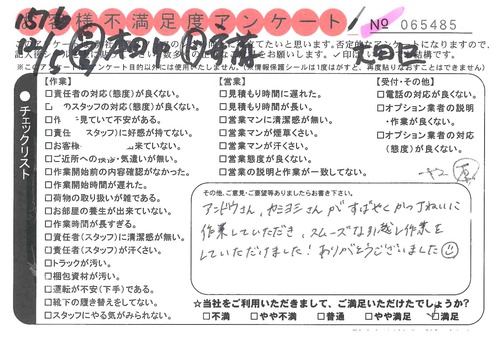 お客様不満足度アンケート
№ 065485
チェックリスト
【作業】
□責任者の対応(態度)が良くない。
□スタッフの対応(態度)が良くない。
見ていて不安がある。
□責任 スタッフ)に好感が持てない。
□お客様 出来ていない。
□ご近所への挨拶・気遣いが無い。
□作業開始前の内容確認がなかった。
□作業開始時間が遅れた。
□荷物の取り扱いが雑である。
□お部屋の養生が出来ていない。
□作業時間が長すぎる。
□責任者(スタッフ)に清潔感が無い。
□責任者(スタッフ)が汗くさい。
□トラックが汚い。
□梱包資材が汚い。
□運転が不安(下手)である。
□靴下の履き替えをしてない。
□スタッフにやる気がみられない。
【営業】
□見積もり時間に遅れた。
□見積もり時間が長い。
□営業マンに清潔感が無い。
□営業マンが煙草くさい。
□営業マンが汗くさい。
□営業態度が良くない。
□営業の説明と作業が一致してない。
【受付・その他】
□電話の対応が良くない。
□オプション業者の説明・作業が良くない。
□オプション業者の対応(態度)が良くない。
その他、ご意見・ご要望等ありましたらお書き下さい。
アンドウさん、カミヨシさんがすばやくかつていねいに
作業していただき、スムーズな引越し作業を
していただけました！ありがとうございました
☆当社をご利用いただきまして、ご満足いただけたでしょうか？
□不満 □やや不満 □普通 □やや満足 □満足